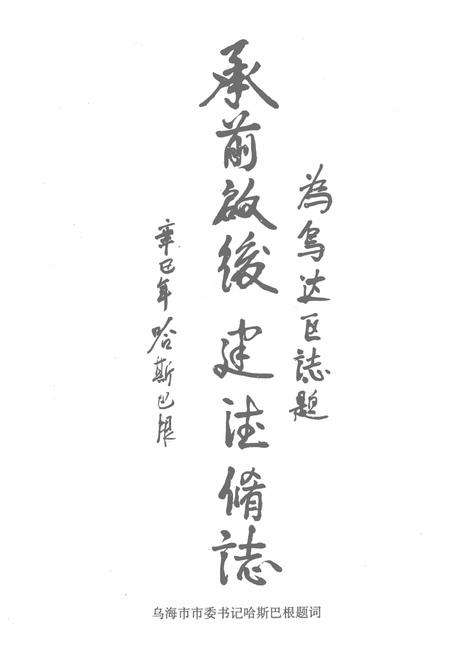 為烏达区誌題
承前啟後 建脩誌
辛巳年 哈斯巴根
乌海市市委书记哈斯巴根题词